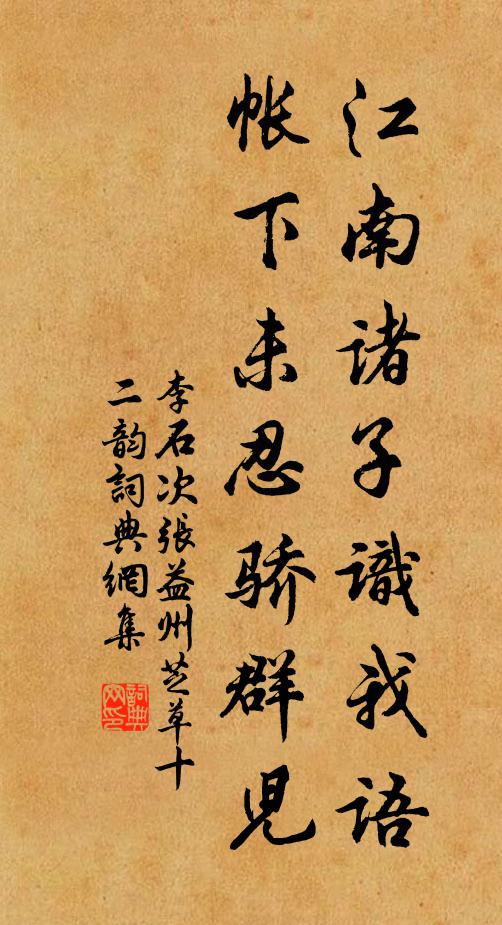 江南诸子識我语
帐下未忍骄群児
李石次張益州芝草十
二韵詞典網集
詞典网印